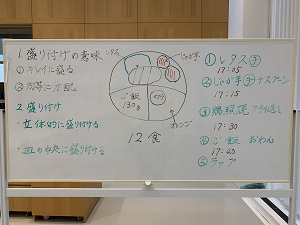 1 盛り付けの意味
① キレイに盛る
② 均等に分配
2 盛り付け
・立体的に盛り付ける
・皿の中央に盛り付ける
レタス
じゃが芋
ご飯
130g
オレンジ
12食
① レタス 手
17:05
② じゃが芋 手 ナスプーン
17:15
③
17:30
④ ご飯 おわん
17:45
⑤ ラップ